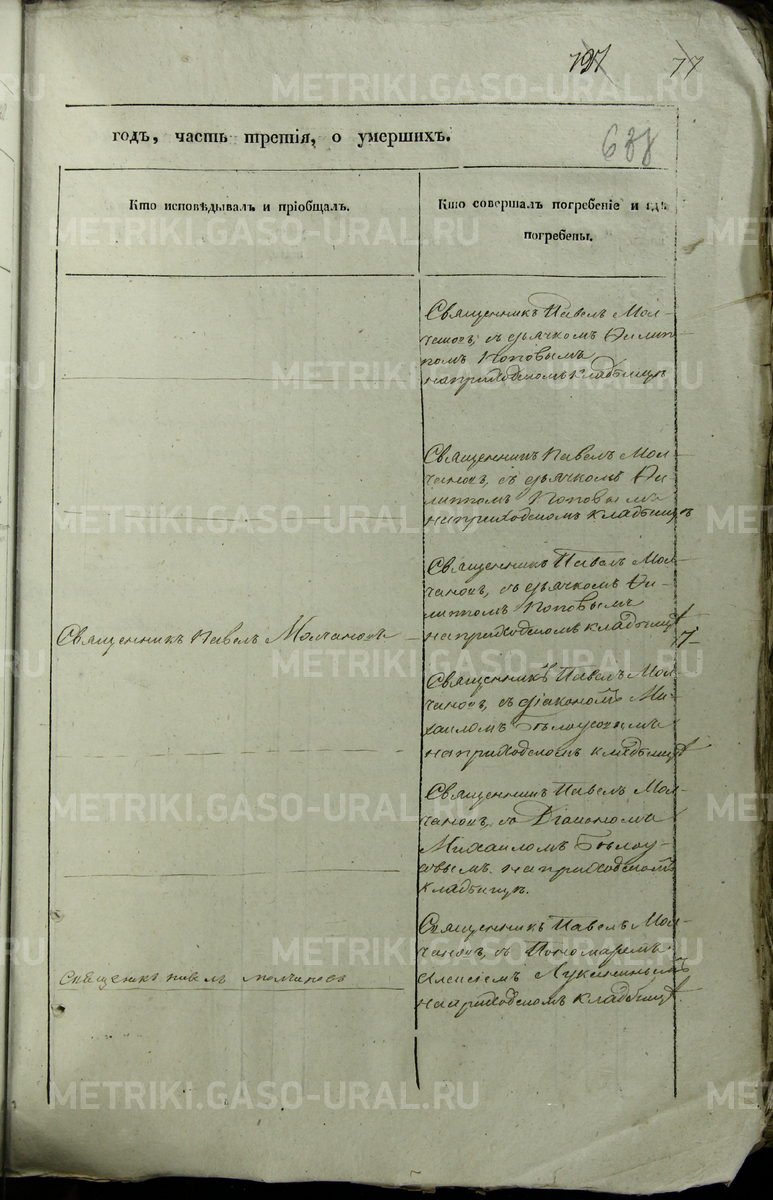 77
годъ, часть третія, о умершихъ.
638
Кто исповѣдывалъ и пріобщалъ.
Кто совершалъ погребеніе и гдѣ
погребены.
Священникъ Павелъ Мол-
чановъ, съ дьячкомъ Филип-
помъ Поповымъ
на приходскомъ кладбищѣ
Священникъ Павелъ Мол-
чановъ, съ дьячкомъ Фи-
липпомъ Поповымъ
на приходскомъ кладбищѣ
Священникъ Павелъ Молчановъ
Священникъ Павелъ Мол-
чановъ, съ дьячкомъ Фи-
липпомъ Поповымъ
на приходскомъ кладбищѣ
Священникъ Павелъ Мол-
чановъ, съ діакономъ Ми-
хаиломъ
на приходскомъ кладбищѣ
Священникъ Павелъ Мол-
чановъ, съ Діакономъ
Михаиломъ Бѣлоу-
совымъ на приходскомъ
кладбищѣ.
Священникъ Павелъ Молчановъ
Священникъ Павелъ Мол-
чановъ, съ Пономаремъ
Алексіемъ Лукинымъ
на приходскомъ кладбищѣ.
METRIKI.GASO-URAL.RU